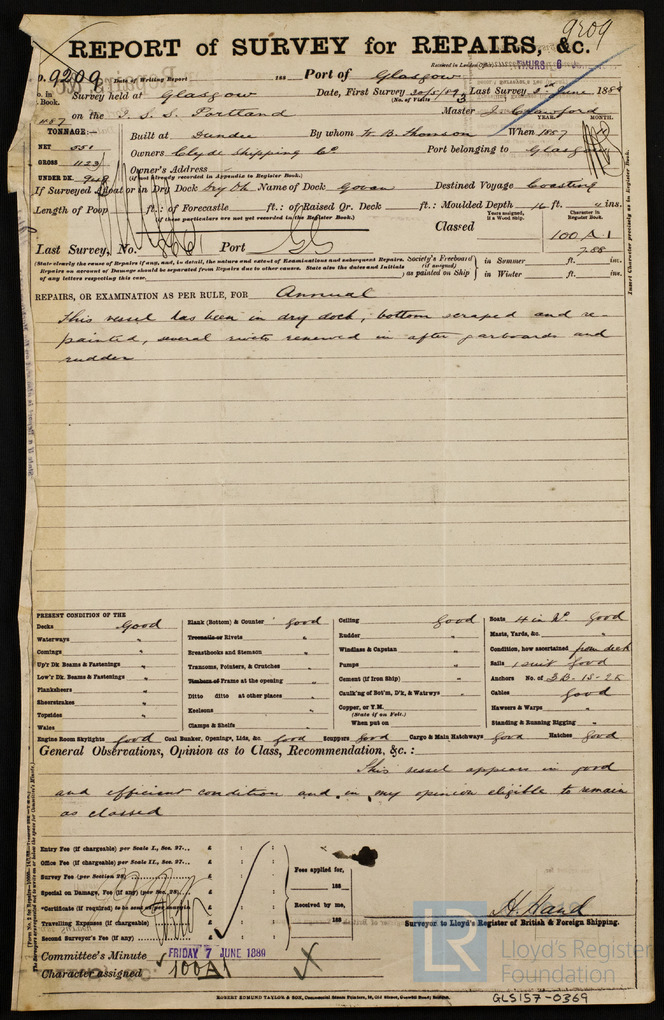 9209
REPORT of SURVEY for REPAIRS, &c.
Received in London Office THURS 6
No. 9209 Date of Writing Report 188 Port of Glasgow
No. in Book. Survey held at Glasgow Date, First Survey 20/5/89 Last Survey 3rd June, 1889
(No. of Visits 3
on the I. S. S. Portland Master J. Crawford
TONNAGE:— YEAR. MONTH.
NET 551 Built at Dundee By whom W. B. Thomson When 1887
GROSS 1123 Owners Clyde Shipping Co Port belonging to Glasgow
Owner's Address
UNDER DK. (if not already recorded in Appendix to Register Book.)
If Surveyed Afloat or in Dry Dock Dry Dk Name of Dock Govan Destined Voyage Coasting
Length of Poop ft.: of Forecastle ft.: of Raised Qr. Deck ft.: Moulded Depth 16 ft. ins.
(if these particulars are not yet recorded in the Register Book.)
Years assigned, if a Wood ship. Character in Register Book.
Classed 100 A 1
7.88
Last Survey, No. Port
(State clearly the cause of Repairs if any, and, in detail, the nature and extent of Examinations and subsequent Repairs.
Repairs on account of Damage should be separated from Repairs due to other causes. State also the dates and initials
of any letters respecting this case.)
Society's Freeboard (if assigned) as painted on Ship
in Summer ft. ins.
in Winter ft. ins.
Insert Character precisely as in Register Book.
REPAIRS, OR EXAMINATION AS PER RULE, FOR Annual
This vessel has been in dry dock, bottom scraped and re-
painted, several rivets renewed in after garboards and
rudder
PRESENT CONDITION OF THE
Decks Good
Waterways "
Comings "
Up'r Dk. Beams & Fastenings "
Low'r Dk. Beams & Fastenings "
Planksheers "
Sheerstrakes "
Topsides "
Wales
Blank (Bottom) & Counter Good
Treenails or Rivets "
Breasthooks and Stemson "
Transoms, Pointers, & Crutches "
Timbers of Frame at the opening "
Ditto ditto at other places "
Keelsons "
Clamps & Shelfs
Ceiling Good
Rudder "
Windlass & Capstan "
Pumps "
Cement (if Iron Ship) "
Caulk'ng of Bot'm, D'k, & Watrwys "
Copper, or Y.M.
(State if on Felt.)
When put on
Boats 4 in No. Good
Masts, Yards, &c. "
Condition, how ascertained from deck
Sails 1 suit Good
Anchors No. of 3 B. 1 S. 2 K
Cables Good
Hawsers & Warps "
Standing & Running Rigging "
Engine Room Skylights Good Coal Bunker, Openings, Lids, &c. Good Scuppers Good Cargo & Main Hatchways Good Hatches Good
General Observations, Opinion as to Class, Recommendation, &c. :
This vessel appears in good
and efficient condition and in my opinion eligible to remain
as classed
Entry Fee (if chargeable) per Scale I., Sec. 27... £ : :
Office Fee (if chargeable) per Scale II., Sec. 27... £ : :
Survey Fee (per Section 28) £ : :
Special on Damage, Fee (if any) (per Sec. 28) £ : :
*Certificate (if required) to be sent as per margin £ : :
Travelling Expenses (if chargeable) £ : :
Second Surveyor's Fee (if any) £ : :
Fees applied for,
188
Received by me,
188
H. Hand
Surveyor to Lloyd's Register of British & Foreign Shipping.
Committee's Minute FRIDAY 7 JUNE 1889
Character assigned 100A1
ROBERT EDMUND TAYLOR & SON, Commercial Steam Printers, 19, Old Street, Goswell Road, London.
GLS157-0369
LR
Lloyd's Register
Foundation